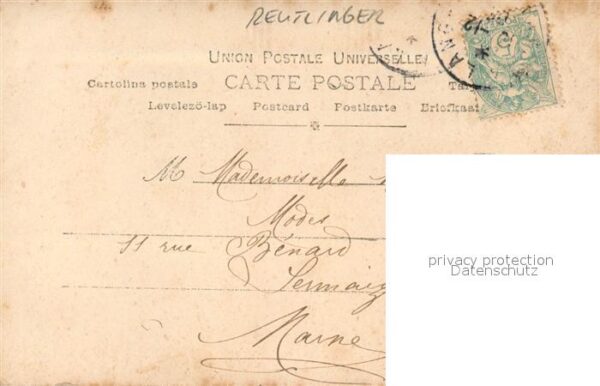 REUTLINGER
UNION POSTALE UNIVERSELLE
CARTE POSTALE
Cartolina postale
Levelező-lap Postcard Postkarte Briefkaart
LANG
M Mademoiselle
Modes
11 rue Bénard
Sermaiz
Marne
privacy protection
Datenschutz